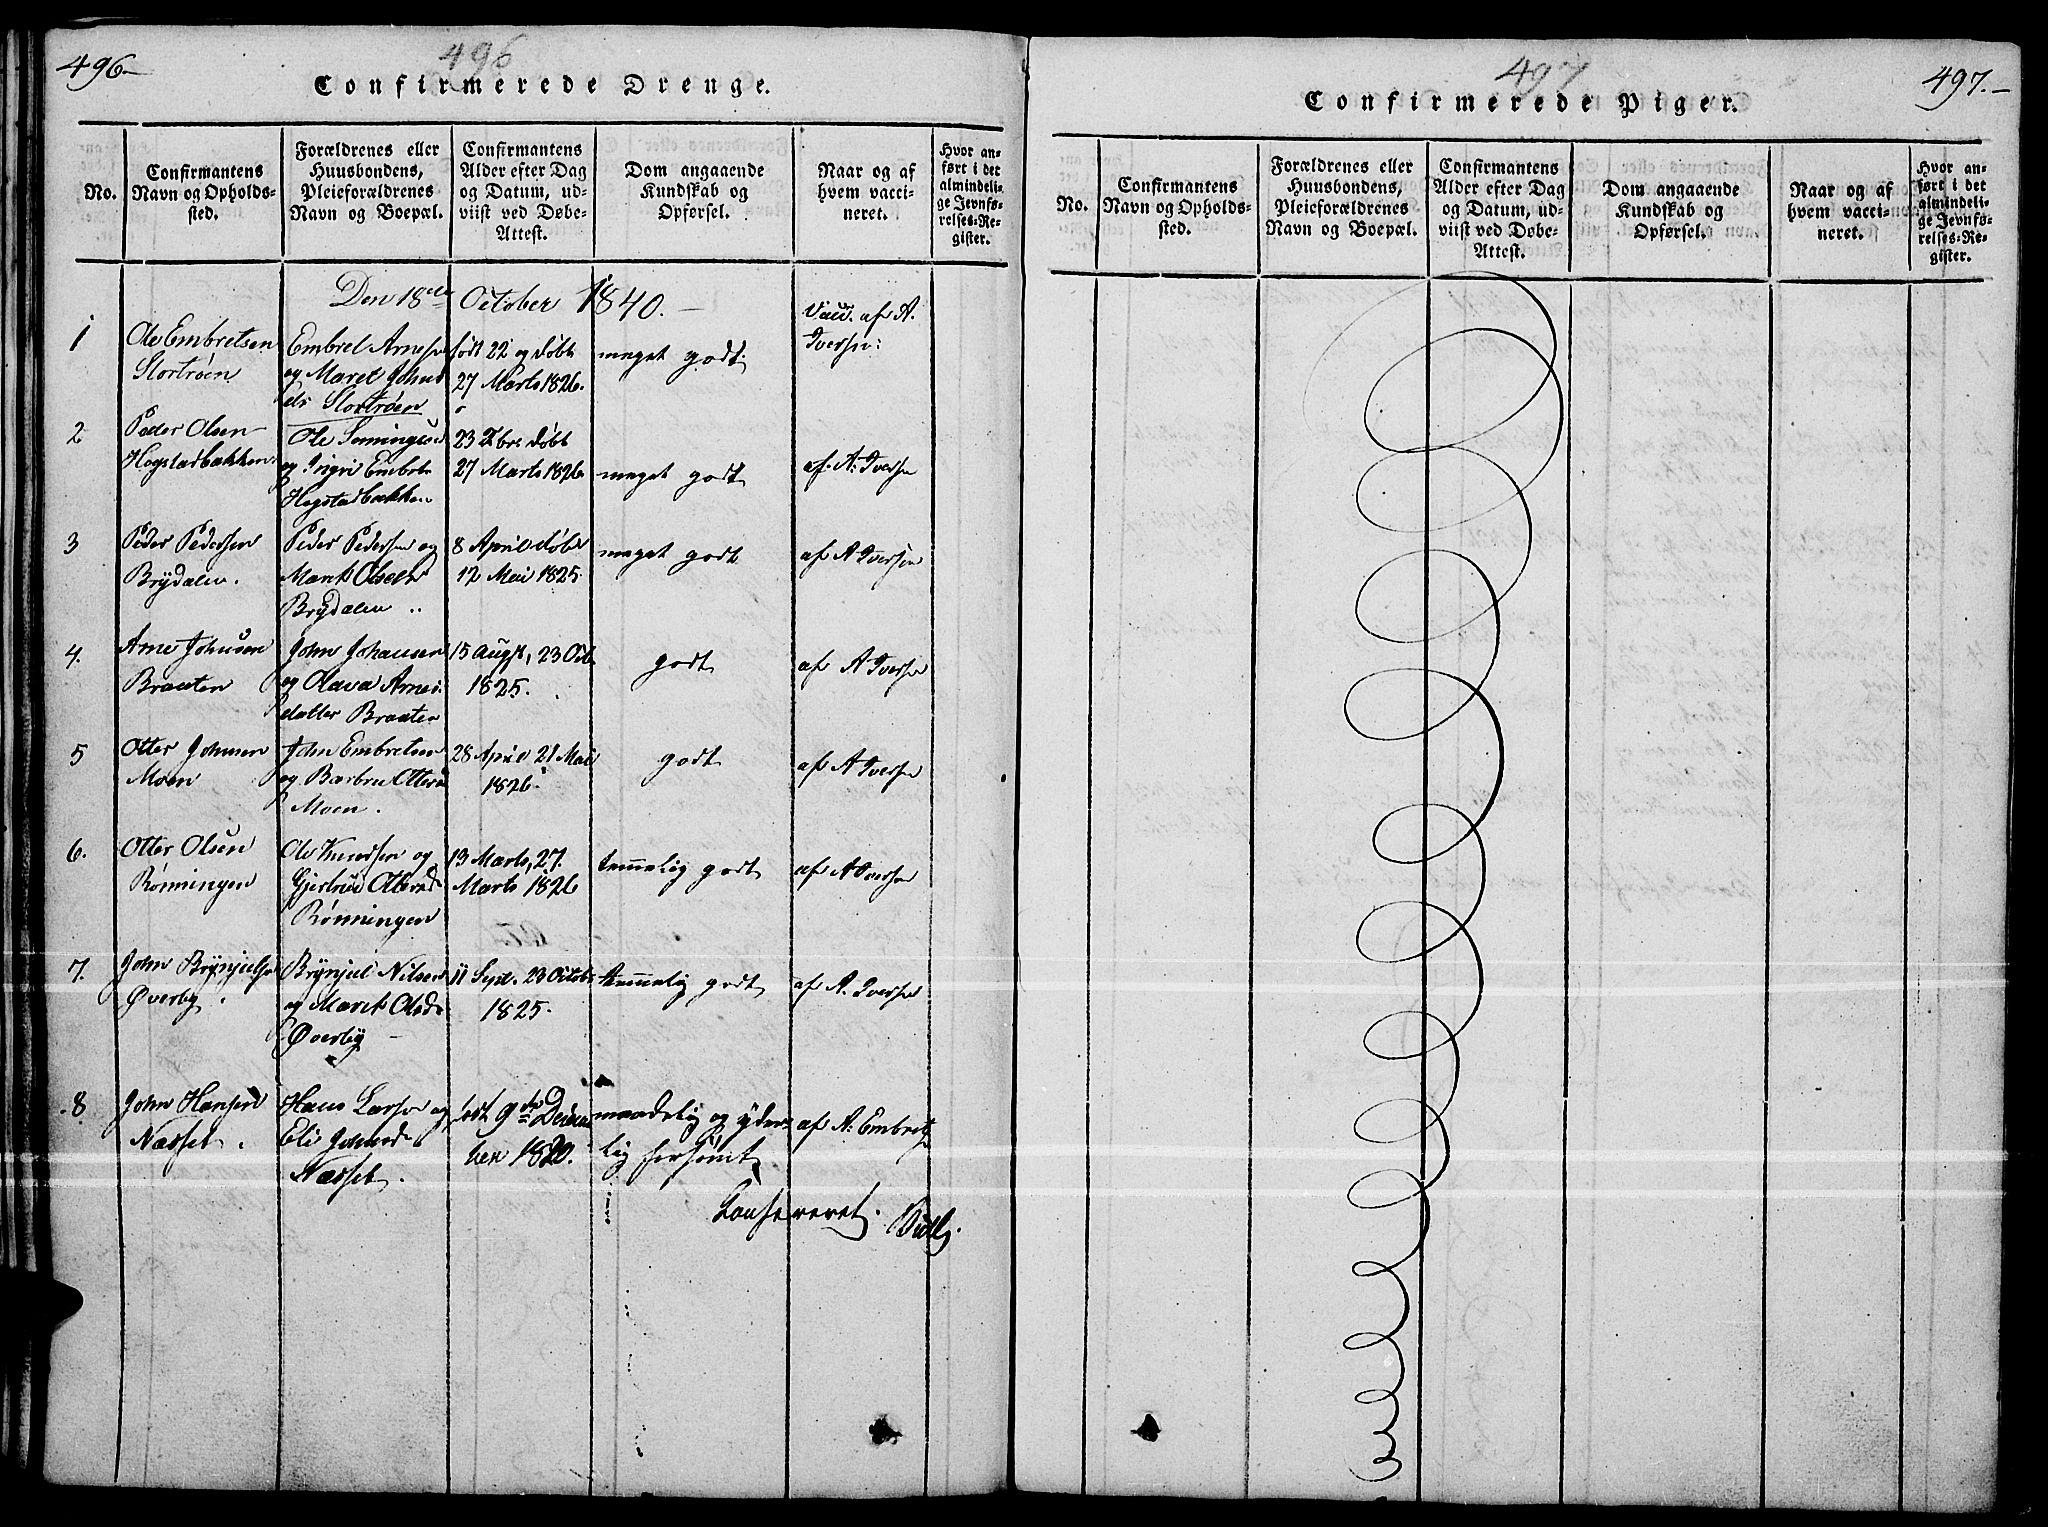 496.
496
Confirmerede Drenge.
No.
Confirmantens
Navn og Opholds-
sted.
Forældrenes eller
Huusbondens,
Pleieforældrenes
Navn og Boepæl.
Confirmantens
Alder efter Dag
og Datum, ud-
viist ved Døbe-
Attest.
Dom angaaende
Kundskab og
Opførsel.
Naar og af
hvem vacci-
neret.
Hvor an-
ført i det
almindeli-
ge Jevnfø-
relses-Re-
gister.
Den 18de October 1840.
1
Ole Embretsen
Stortrøen
Embret Arnesen
og Maret Johns
dr Stortrøen
født 22 og døbt
27 Marts 1826.
meget godt.
Vacc. af A.
Iversen
2
Peder Olsen
Hogstadbakken
Ole Semingsen
og Ingri Embrets
Hogstadbakken
23 Fbr. døbt
27 Marts 1826
meget godt
af A. Iversen
3
Peder Pedersen
Brydalen.
Peder Pedersen og
Marit Olsdtr
Brydalen
8 April døbt
12 Mai 1825.
meget godt
af A Iversen
4.
Arne Johnsen
Braaten
John Johansen
og Olava Arnes
datter Braaten
15 Augst, 23 Oct.
1825.
godt
af A Iversen
5
Otter Johnsen
Moen
John Embretsen
og Barbru Ottersd
Moen.
28 April 21 Mai
1826.
godt
af A Iversen
6.
Otter Olsen
Rönningen
Ole Knudsen og
Gjertrud Ottersd
Rönningen
13 Marts, 27.
Marts 1826
temelig godt
af A Iversen
7.
John Brynjulfs
Øverby.
Brynjul Nilsen
og Marit Olsd
Øverby
11 Sept. 23 Octob.
1825.
temelig godt
af A. Iversen
8
John Hansen
Næsset.
Hans Larsen og
Eli Johnsd
Næsset.
født 9de Decem
ber 1820.
maadelig og yder-
lig forsømt
af A. Embrets
497
497.
Confirmerede Piger.
No.
Confirmantens
Navn og Opholds-
sted.
Forældrenes eller
Huusbondens,
Pleieforældrenes
Navn og Boepæl.
Confirmantens
Alder efter Dag
og Datum, ud-
viist ved Døbe-
Attest.
Dom angaaende
Kundskab og
Opførsel.
Naar og af
hvem vacci-
neret.
Hvor an-
ført i det
almindeli-
ge Jevnfø-
relses-Re-
gister.